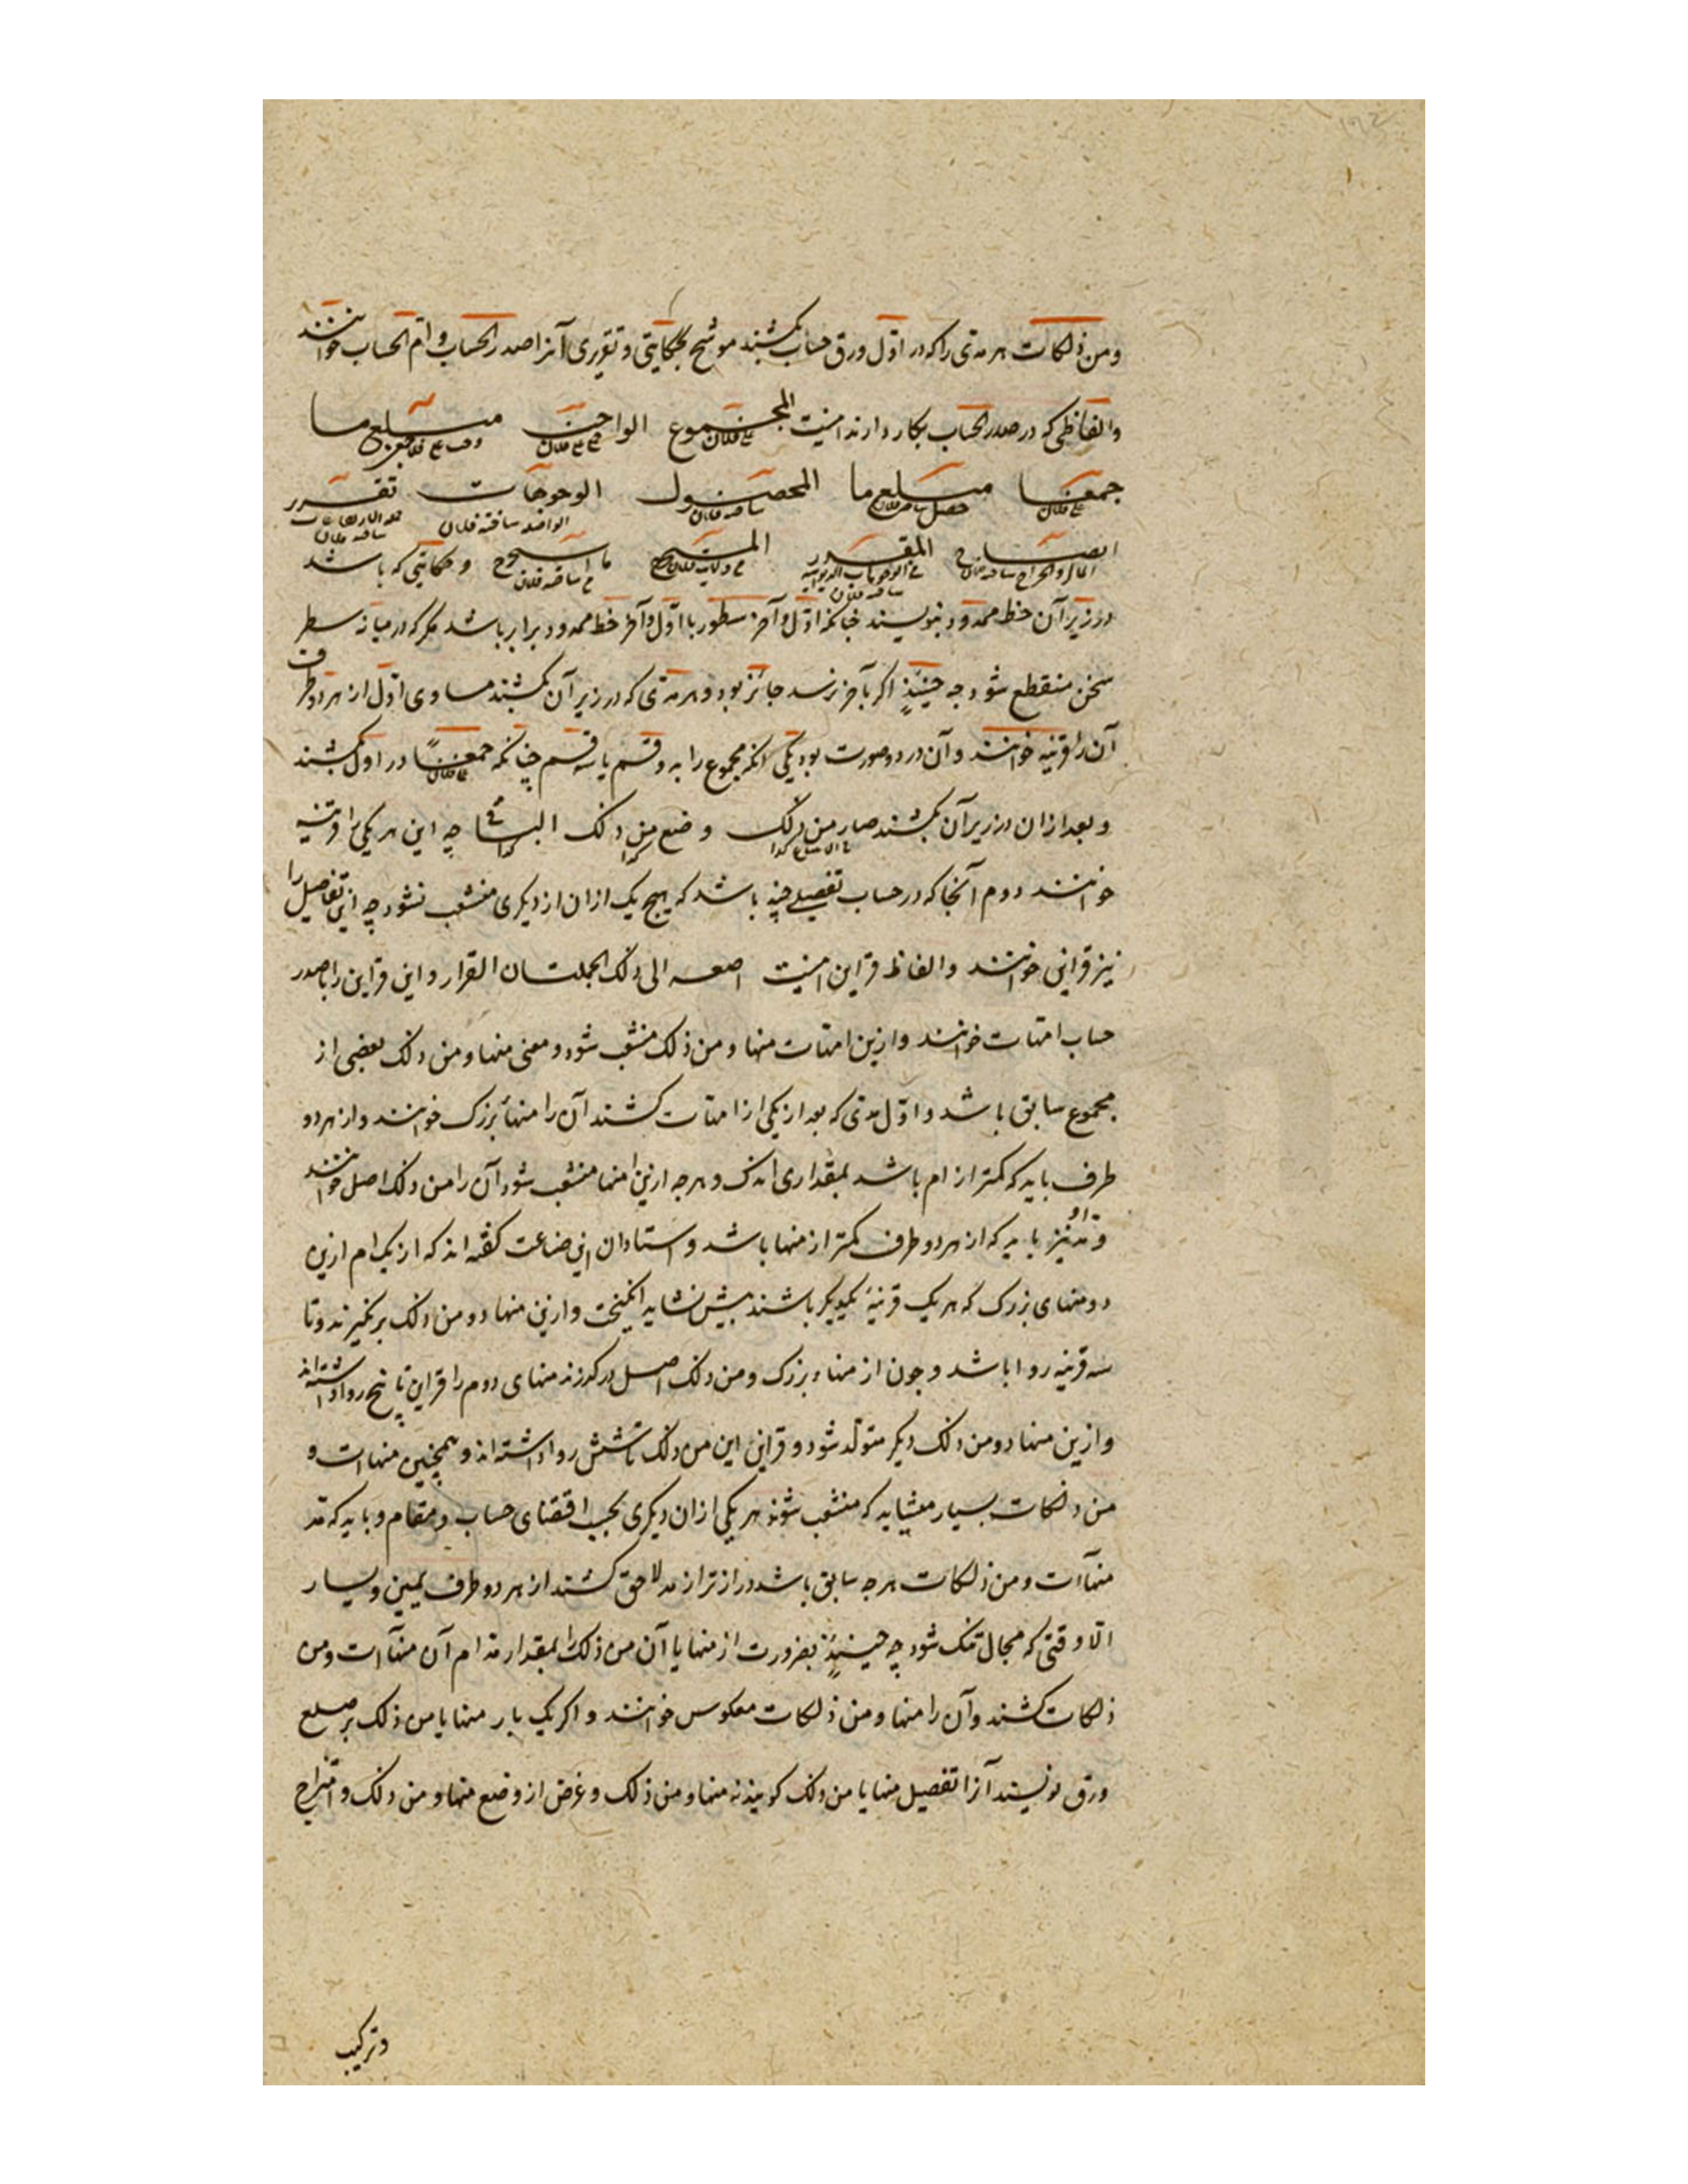 ومن ذلکات هر مدی را که در اوّل ورق حساب بکشند موشح بحکایتی و تقریری آنرا صدر الحساب و امّ الحساب خوانند
والفاظی که در صدر الحساب بکار دارند اینست المجموع علی فلان الواجب علی فلان مبلغ ما
جمعنا علی فلان مبلغ ما حصل المحصول ساقه فلان الوجوهات ساقه فلان تقریر
المال والخراج ساقه فلان المقرر ساقه فلان المستخرج ما استخرج ساقه فلان و حکایتی که باشد
در زیر آن خط ممدود بنویسند چنانکه اوّل و آخر سطور با اوّل و آخر خط ممدود برابر باشد مکر که در میانه سطر
سخن منقطع شود چه حینئذٍ اکر بآخر نرسد جائز بود و هر مدی که در زیر آن بکشند مساوی اوّل از هر دو طرف
آن را قرینه خوانند و آن در دو صورت بود یکی آنکه مجموع را به دو قسم یا سه قسم چنانکه جمعنا علی فلان در اوّل بکشند
و بعد از ان در زیر آن بکشند صار من ذلک وضع من ذلک کذا الباقی کذا چه این هر یکی را قرینه
خوانند دوم آنجا که در حساب تفصیلی چند باشد که هیچ یک از ان از دیکری منشعب نشود چه این تفاصیل را
نیز قراین خوانند و الفاظ قراین اینست الی ذلک الجملتان القرار و این قراین را با صدر
حساب امّهات خوانند و ازین امّهات منها و من ذلک منشعب شود و معنی منها و من ذلک بعضی از
مجموع سابق باشد و اوّل مدی که بعد از یکی از امهات کشند آن را منهاء بزرک خوانند و از هر دو
طرف باید که کمتر از ام باشد بمقداری اندک و هر چه ازین منها منشعب شود آن را من ذلک اصل خوانند
و مد او نیز باید که از هر دو طرف کمتر از منها باشد و استادان این صناعت کفته اند که از یک ام ازین
دو منهای بزرک که هر یک قرینهٔ یکدیکر باشند بیش نشاید انکیخت و ازین منها دو من ذلک برنخیزند و تا
سه قرینه روا باشد و چون از منهاء بزرک و من ذلک اصل درکذرند منهای دوم را قراین تا پنج روا داشته اند
و ازین منها دو من ذلک دیکر متولّد شود و قراین این من ذلک تا شش روا داشته اند و همچنین منهاات و
من ذلکات بسیار میشاید که منشعب شوند هر یکی از ان دیکری بحسب اقتضای حساب و مقام و باید که مد
منهاآت و من ذلکات هر چه سابق باشد درازتر از مد لاحق کشند از هر دو طرف یمین و یسار
الّا وقتی که مجال تنک شود چه حینئذٍ بضرورت از منها یا آن من ذلک را بمقدار مد ام آن منهاآت و من
ذلکات کشند و آن را منها و من ذلکات معکوس خوانند و اکر یک بار منها یا من ذلک بر ضلع
ورق نویسند آنرا تفصیل منها یا من ذلک کویند نه منها و من ذلک و غرض از وضع منها و من ذلک و
و ترکیب